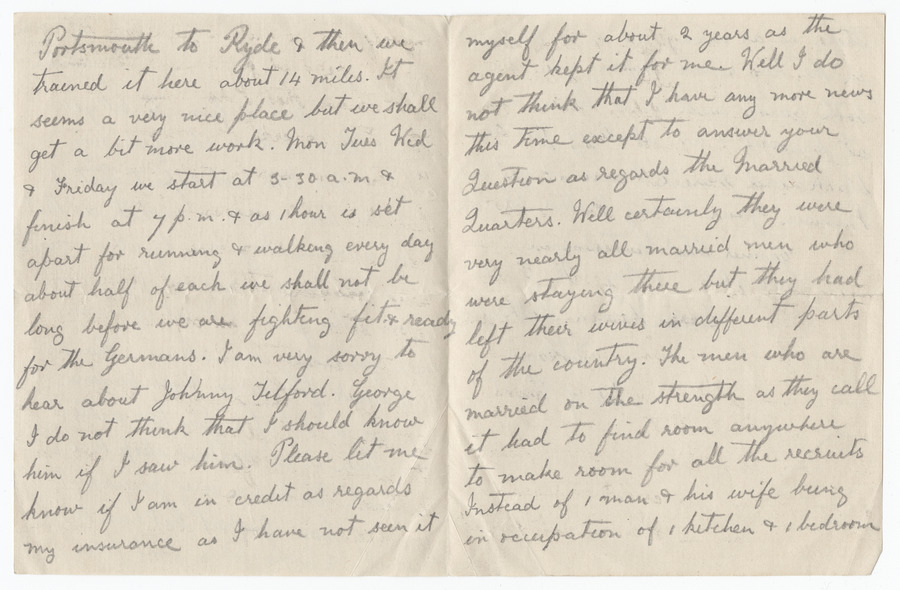 Portsmouth to Ryde & then we
trained it here about 14 miles. It
seems a very nice place but we shall
get a bit more work. Mon Tues Wed
& Friday we start at 5-30 a.m. &
finish at 7 p.m. & as 1 hour is set
apart for running & walking every day
about half of each we shall not be
long before we are fighting fit & ready
for the Germans. I am very sorry to
hear about Johnny Telford. George
I do not think that I should know
him if I saw him. Please let me
know if I am in credit as regards
my insurance as I have not seen it
myself for about 2 years as the
agent kept it for me. Well I do
not think that I have any more news
this time except to answer your
Question as regards the Married
Quarters. Well certainly they were
very nearly all married men who
were staying there but they had
left their wives in different parts
of the country. The men who are
married on the strength as they call
it had to find room anywhere
to make room for all the recruits
Instead of 1 man & his wife being
in occupation of 1 kitchen & 1 bedroom